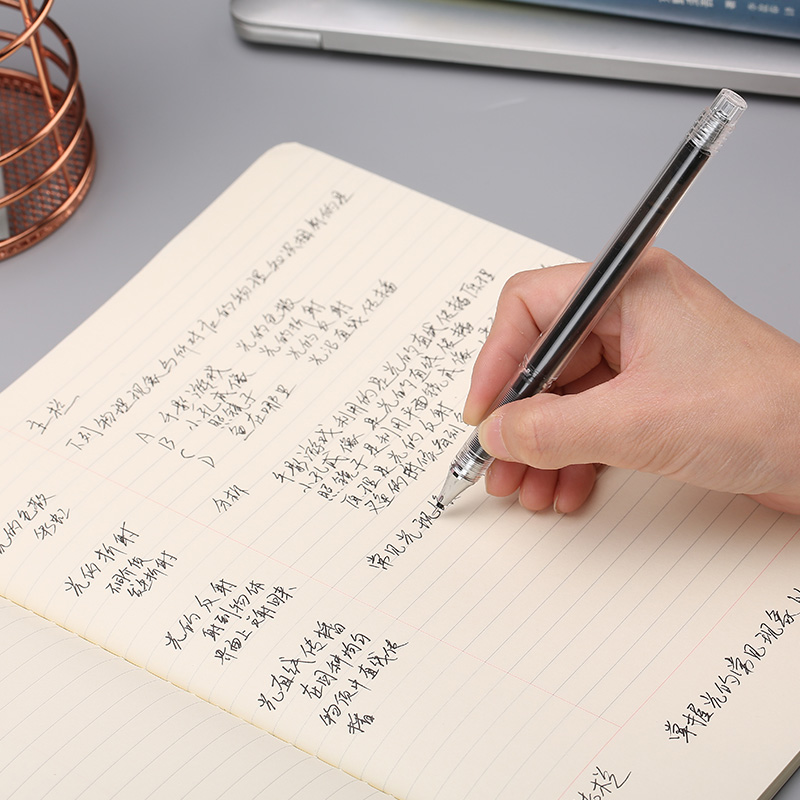 下列物理现象与所对应的物理知识相 的是
A 手影游戏 光的色散
B 小孔成像 光的折射
C 照镜子 光的反射
D 光沿直线传播
分析
手影游戏利用的是光的直线传播原理
小孔成像 是光的直线传播
照镜子是利用平面镜成像
原理是光的反射
的时候看到
常见光现
光的色散
彩虹
光的折射
不同介质
折射
光的反射
射到物体
界面上反射回来
光直线传播
在同种均匀
物质中直线传
播
掌握光的常见现象